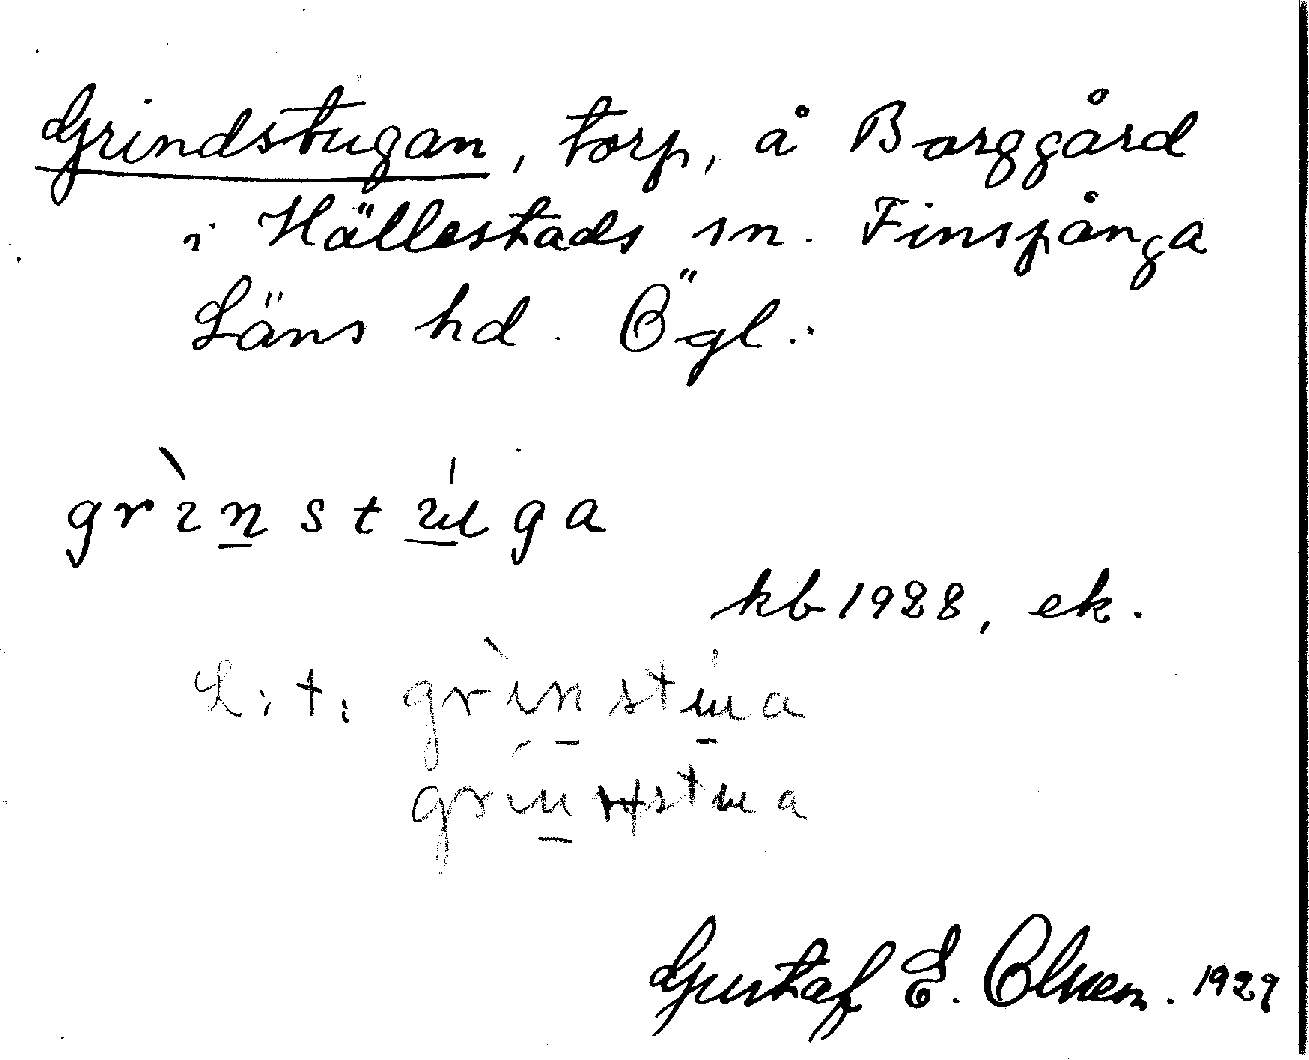 Grindstugan, torp, å Borggård
i Hällestads sn. Finspånga
Läns hd. Ögl.
grìnstúga
kb 1928, ek.
L. t. grìnstua
grinstua
Gustaf E. Olsen. 1929